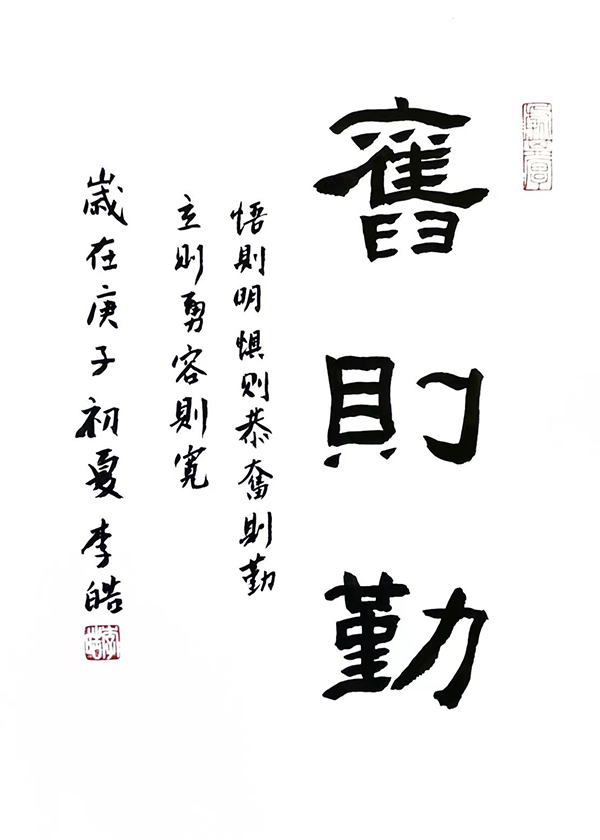 舊則勤
悟則明惧则恭奮則勤
立则勇容則寬
歲在庚子初夏李皓
李皓